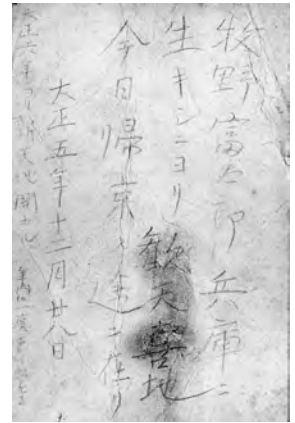 牧野富太郎兵庫ニ
生キシニヨリ歓天喜地
今日帰京ノ途ニ在リ
大正五年十二月廿八日
大正六年